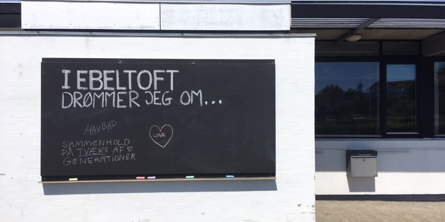 I EBELTOFT
DRØMMER JEG OM...
HAVBAD
SAMMENHOLD
PÅ TVÆRS AF
GENERATIONER